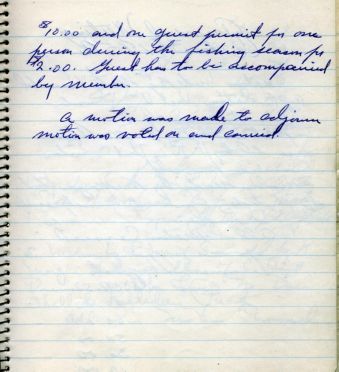 $10.00 and one guest permit for one
person during the fishing season for
$2.00. Guest has to be accompanied
by member.
A motion was made to adjourn
motion was voted on and carried.